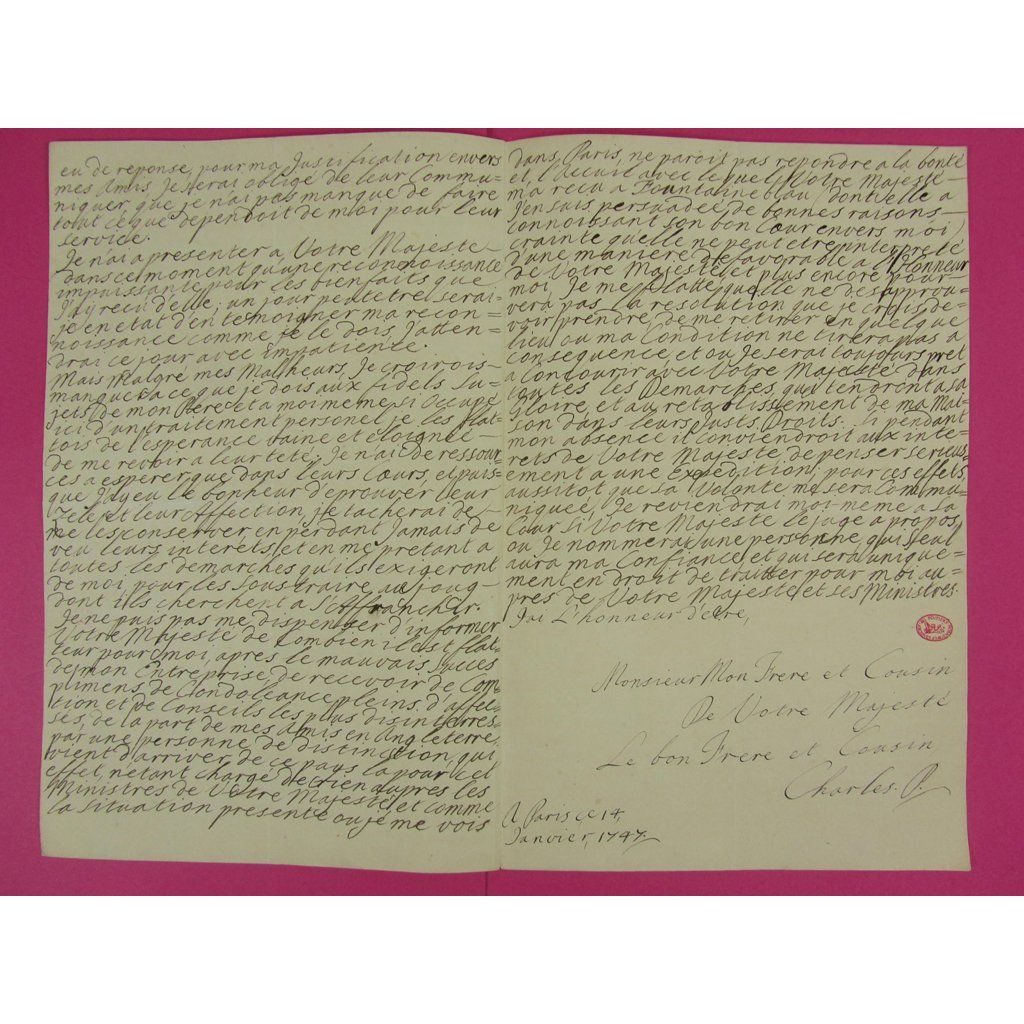 eu de reponse, pour ma Justification envers
mes Amis, Je serai obligé de leur Commu=
niquer, que je n'ai pas manque de faire
tout ce que dependoit de moi pour leur
service.
Je n'ai a presenter a, Votre Majeste
dans cet moment qu'une reconnoissante
impuissante pour les bienfaits que
J'ay reçu d'elle; un jour peutetre serai-
je en etat d'en temoigner ma recon=
noissance comme je le dois, J'atten=
drai ce jour avec impatience.
Mais Malgré mes Malheurs, Je croirois
manquer a ce que je dois aux fidels Su=
jets de mon Pere et a moi meme si occupé
ici d'un traitement personel je les flat=
tois de l'esperance vaine et eloignée
de me revoir a leur tete. Je n'ai de ressour=
ces a esperer que dans leurs Cœurs, et puis=
que J'ay eu le bonheur d'eprouver leur
Zele, et leur Affection, je tacherai de
me les conserver, en perdant Jamais de
veu leurs interets, et en me pretant a
toutes les demarches qu'ils exigeront
de moi, pour les soustraire au joug
dont ils cherchent a S'Affranchir.
Je ne puis pas me dispenser d'informer
Votre Majeste de Combien il est flat=
teur pour moi, apres le mauvais Succes
de mon Entreprise, de recevoir de Com=
plimens, de Condoleance pleins d'affec=
tion et de Conseils les plus disinterres=
sés, de la part de mes amis en Angleterre,
par une personne de distinction, qui
vient d'arriver, de ce pays la pour cet
effet, n'etant chargé de rien aupres les
Ministres de Votre Majeste, et comme
la situation presente ou je me vois
dans Paris, ne paroit pas repondre a la bonté
et, l'Acceuil avec le quel Votre Majesté
ma recu a Fountaineblau dont elle a
J'en suis persuadée de bonnes raisons
connoissant son bon Cœur envers moi
crainte qu'elle ne peut etre interpreté
d'une maniere defavorable a l'Honneur
de Votre Majeste, et plus encore pour
moi, Je me flatte quelle ne desaprou=
vera pas, la resolution que je crois de=
voir prendre, de me retirer en quelque
lieu ou ma Condition ne tirera pas a
consequence, et ou Je serai toujours pret
a Concourir avec Votre Majesté dans
toutes les Demarches qui tendront a sa
Gloire, et au retablissement de ma Mai=
son dans leurs Justs Droits. Si pendant
mon absence il conviendroit aux inte=
rets de Votre Majeste de penser serieus=
ement a une Expedition pour ces effets,
aussitot que sa Volonte me sera Commu=
niquée, Je reviendrai moi meme a sa
Cour si Votre Majeste le juge a propos,
ou Je nommerai une personne qui seul
aura ma Confiance, et qui sera unique=
ment en droit de traitter pour moi au=
pres de Votre Majeste et ses Ministres.
J'ai L'honneur d'etre,
Monsieur Mon Frere et Cousin
De Votre Majesté
Le bon Frere et Cousin
Charles. P.
A Paris ce 14,
Janvier, 1747.